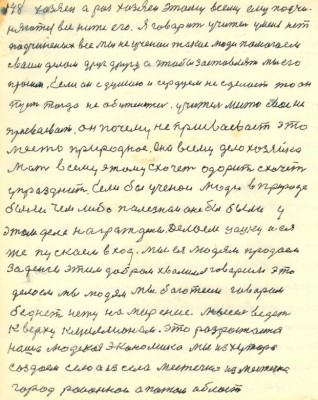 178 хозяен а раз хозяен этому всему ему подчи-
няются вие ните его. Я говорит учител у меня нет
подчиненых все мы не ученои такие люди помогаем
своим делом друг другу а чтобы заставлят мы его
просим. Если он с душою и сердцем не сделает то он
пуст тогда не обижается. учител место свое не
присваевает он почему не присваевает это
место природное. Она всему делу хозяйка
Мат всему этому схочет одорит схочет
упразднит. Если бы ученои люди в Природе
были чем либо полезнаи они бы были у
этом деле награждены. Делаем чашку и ея
же пускаем в ход. мы ея людям продаем
За денги этим добром хвалимся говорим это
делаем мы людям мы багатеем говорим
беднет нету намирение. мысел ведет
К верху К миллионам. это разрастается
наша людская экономика мы из хутора
создаем село а из села местечко из местечка
город районной а потом област